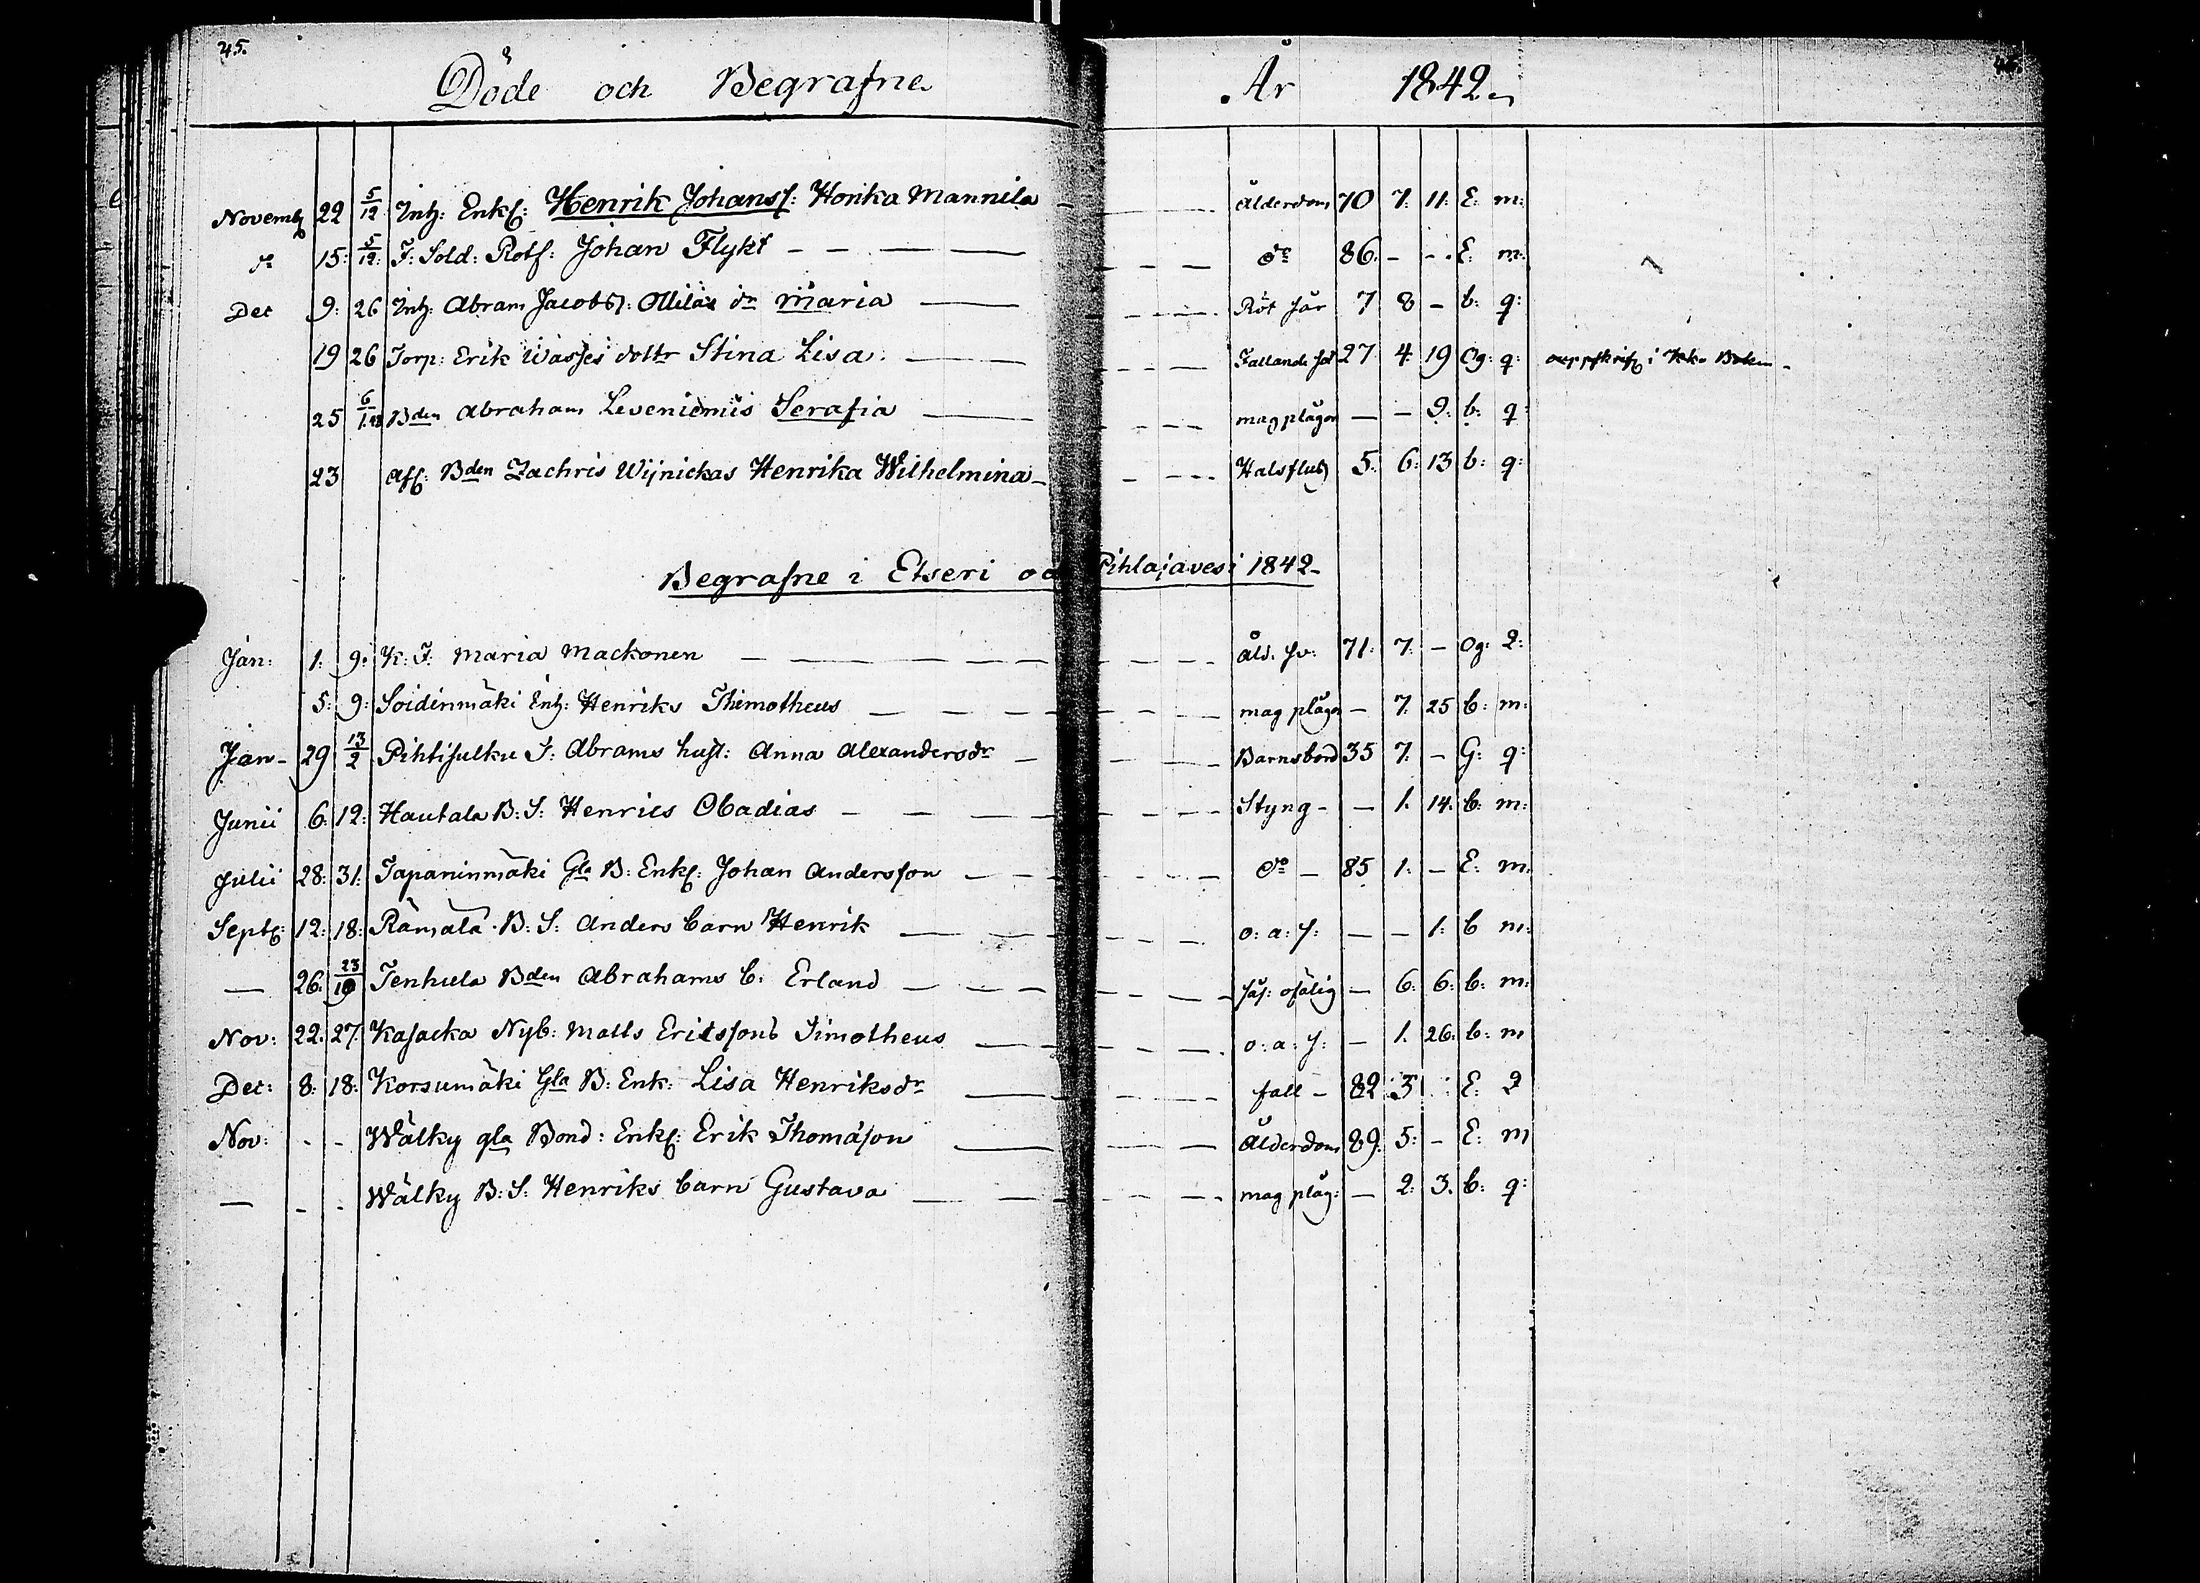 45.
Döde och Begrafne År 1842.
Novemb 22 5/12 Inh: Enkl: Henrik Johanss: Honka Mannila Ålderdom 70 7: 11: E: m:
do 15: 5/12: F: Sold: Rotf: Johan Flykt do 86. - - E: m:
Dec 9: 26 Inh: Abram Jacobss: Ollilas dr Maria Röt sår 7 8 - b: q:
19 26 Torp: Erik Wasses dottr Stina Lisa Fallande sot 27 4 19 Og: q: i Kko Boken
25 6/1.43 Bden Abraham Leveniemis Serafia magplågor - - 9: b: q:
23 Afl: Bden Zachris Wijnickas Henrika Wilhelmina Halsfluß 5: 6: 13 b: q:
Begrafne i Etseri oc Pihlajavesi 1842
Jan: 1: 9: K: I: Maria Mackonen Åld. sv: 71: 7: - Og: q:
5: 9: Soidinmäki Inh: Henriks Thimotheus mag plågor - 7: 25 b: m:
Jan- 29 13/2 Pihtisulku T: Abrams hust: Anna Alexandersdr Barnsbörd 35 7: - G: q:
Junii 6: 12: Hautala B: S: Henrics Obadias Styng - - 1. 14. b: m:
Julii 28: 31: Tapaninmäki Gla B: Enkl: Johan Andersson do - 85 1: - E: m.
Septb: 12: 18: Rämälä B: S: Anders barn Henrik o: a: s: - - 1: b m:
- 26: 23/10 Tenhula Bden Abrahams b: Erland säf: ofälig - 6: 6: b: m:
Nov: 22: 27. Kasacka Nyb: Matts Ericssons Timotheus o: a: s: - 1. 26: b: m
Dec: 8: 18: Korsumäki Gla B: Enk: Lisa Henriksdr fall - 82 3 E: q
Nov: - - Wälky gla Bond: Enkl: Erik Thomason Ålderdom 89. 5: - E: m
- - - Wälky B: S: Henriks barn Gustava mag plåg: - 2: 3. b: q: